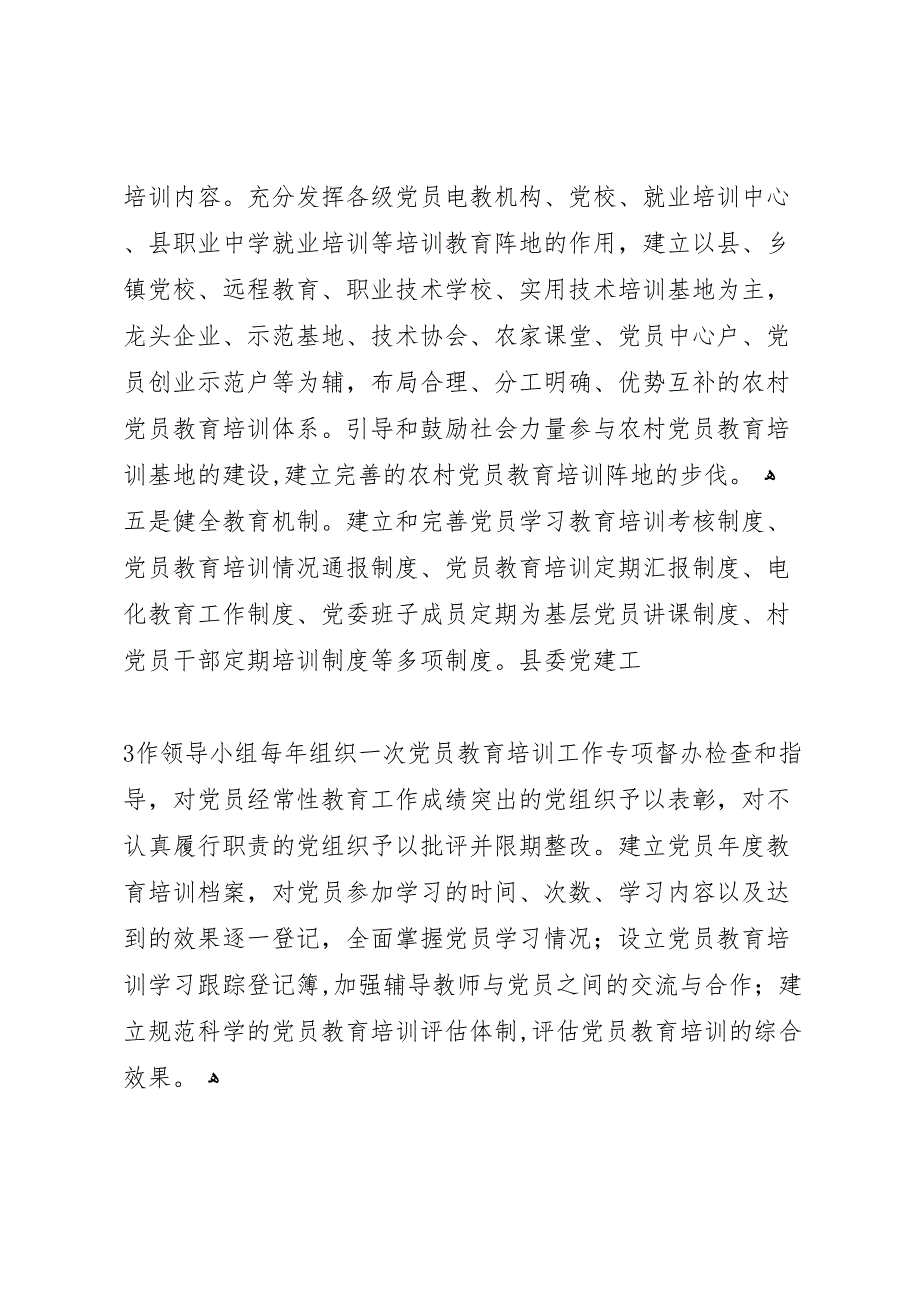 培训内容。充分发挥各级党员电教机构、党校、就业培训中心
、县职业中学就业培训等培训教育阵地的作用，建立以县、乡
镇党校、远程教育、职业技术学校、实用技术培训基地为主，
龙头企业、示范基地、技术协会、农家课堂、党员中心户、党
员创业示范户等为辅，布局合理、分工明确、优势互补的农村
党员教育培训体系。引导和鼓励社会力量参与农村党员教育培
训基地的建设,建立完善的农村党员教育培训阵地的步伐。 ﻫ
五是健全教育机制。建立和完善党员学习教育培训考核制度、
党员教育培训情况通报制度、党员教育培训定期汇报制度、电
化教育工作制度、党委班子成员定期为基层党员讲课制度、村
党员干部定期培训制度等多项制度。县委党建工
3作领导小组每年组织一次党员教育培训工作专项督办检查和指
导，对党员经常性教育工作成绩突出的党组织予以表彰，对不
认真履行职责的党组织予以批评并限期整改。建立党员年度教
育培训档案，对党员参加学习的时间、次数、学习内容以及达
到的效果逐一登记，全面掌握党员学习情况；设立党员教育培
训学习跟踪登记簿,加强辅导教师与党员之间的交流与合作；建
立规范科学的党员教育培训评估体制,评估党员教育培训的综合
效果。 ﻫ